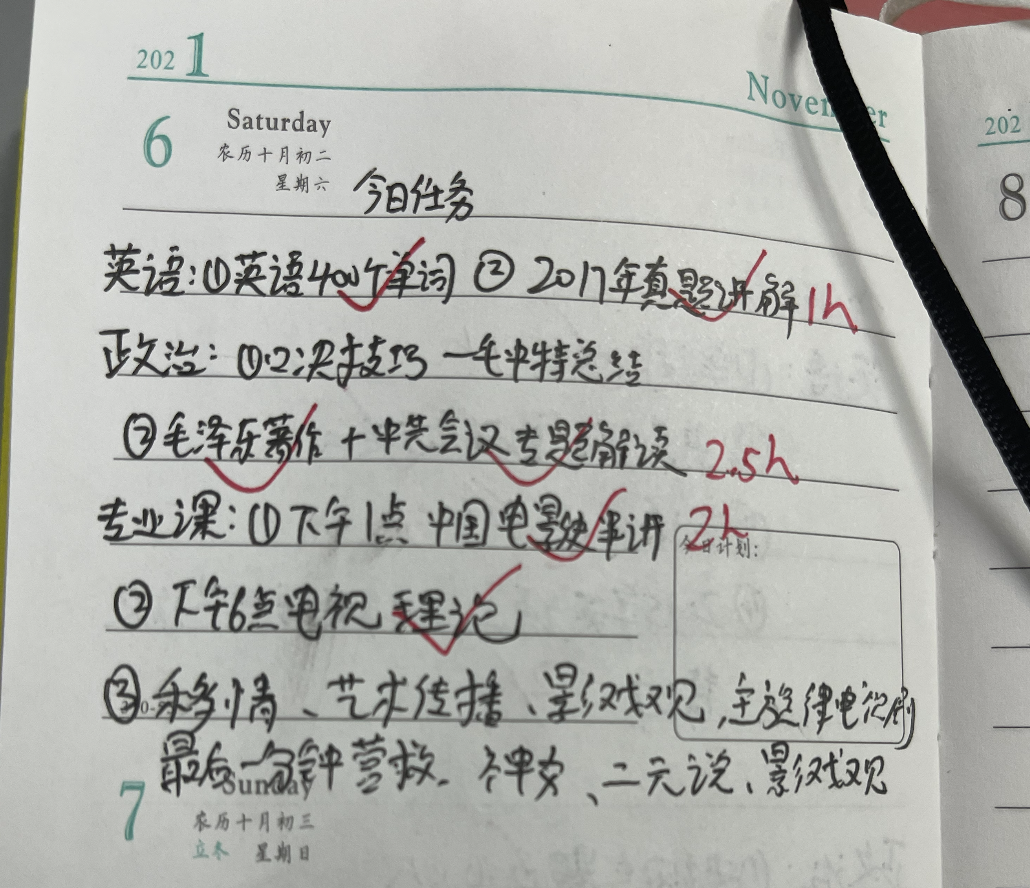 2021
November
202
6
Saturday
8
农历十月初二
星期六
今日任务
英语:①英语400个单词 ② 2017年真题讲解 1h
政治: ①2决技巧 一毛中特总结
②毛泽东著作 + 中共会议专题解读 2.5h
专业课: ①下午1点 中国电影史串讲 2h
今日计划:
② 下午6点电视 笔记
③ 、艺术传播、影戏观,主旋律电视剧
最后一分钟营救、神女、二元说、影戏观
7
Sunday
农历十月初三
立冬 星期日